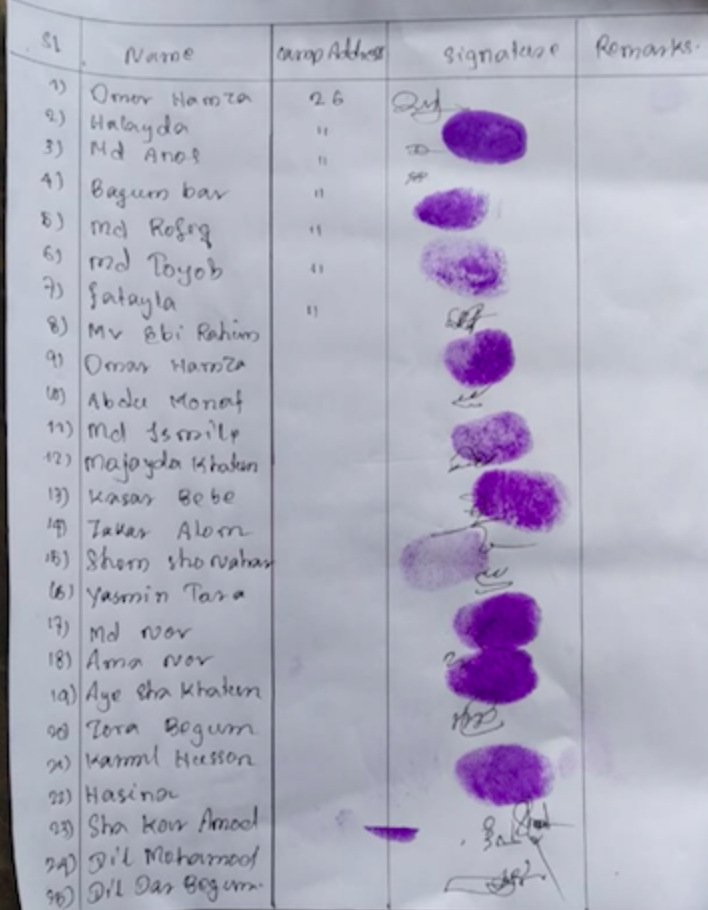 Sl Name Camp Address Signature Remarks.
1) Omar Hamza 26
2) Halayda "
3) Md Anos "
4) Bagum bar "
5) Md Rofiq "
6) Md Toyob "
7) Satayla "
8) Mv Ebi Rahim
9) Omar Hamza
10) Abdu Monaf
11) Md Ismile
12) Majayda Khatun
13) Kasar Bebe
14) Zakar Alom
15) Shom sho Nahar
16) Yasmin Tara
17) Md Nor
18) Ama Nor
19) Aye Sha Khatun
20) Zora Begum
21) Kamal Husson
22) Hasina
23) Sha Kor Amod
24) Dil Mohamod
25) Dil Dar Begum.